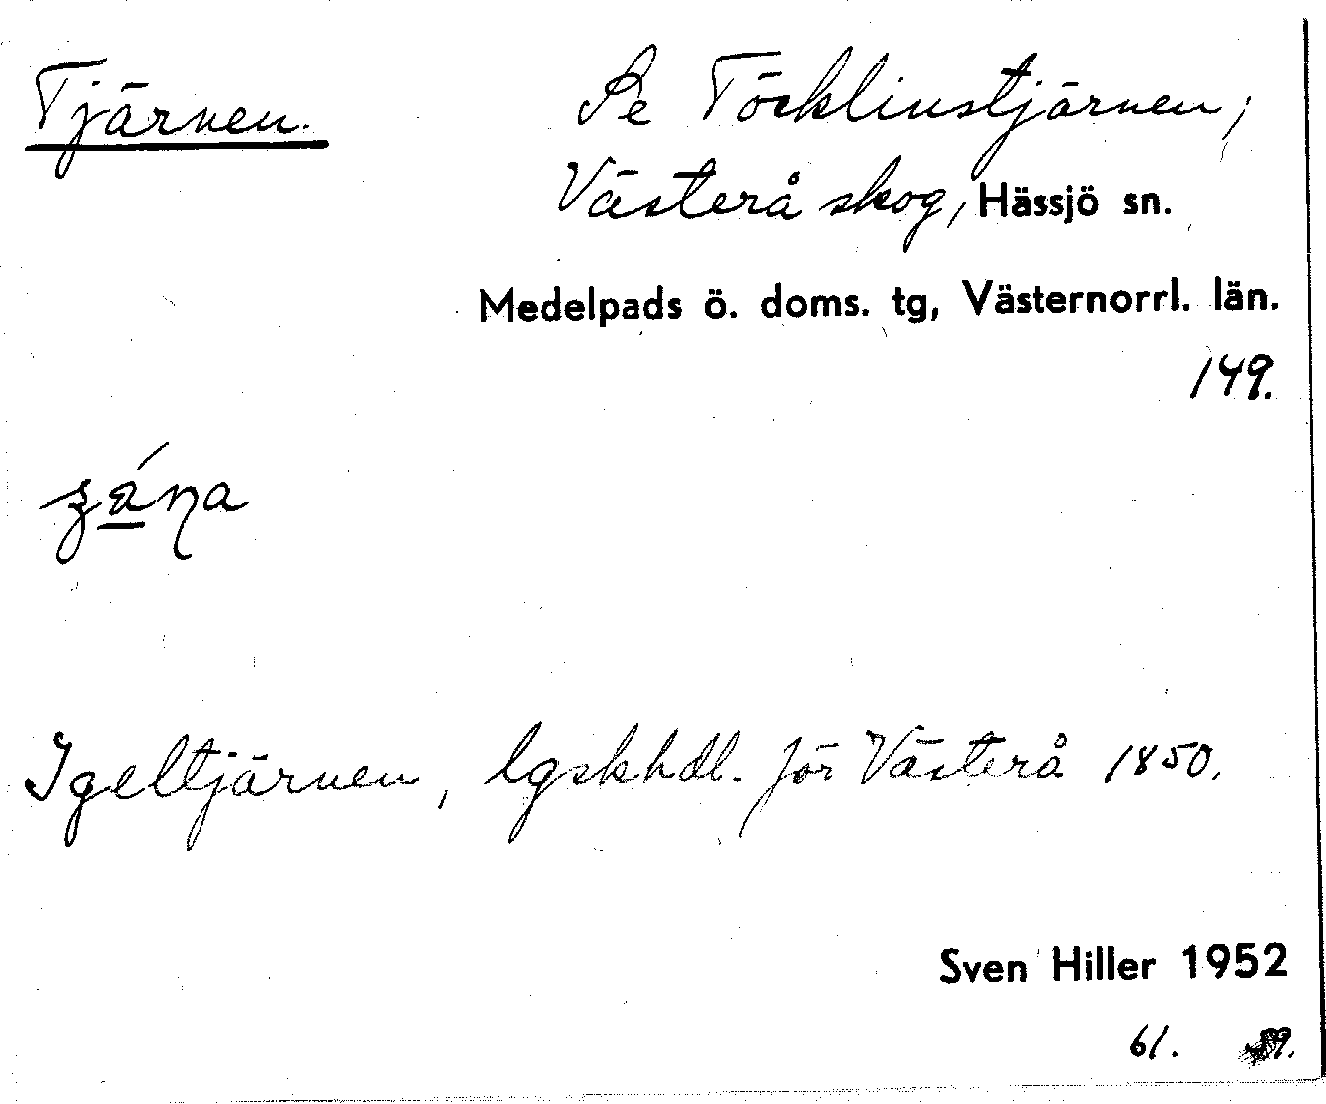 Tjärnen.
Se Töcklinstjärnen,
Västerå skog, Hässjö sn.
Medelpads ö. doms. tg, Västernorrl. län.
149.
Igeltjärnen, lgskhdl. för Västerå 1850.
Sven Hiller 1952
61.